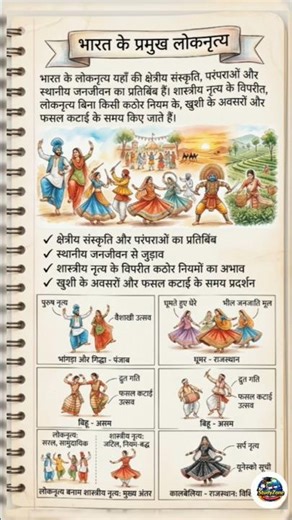 भारत के प्रमुख लोकनृत्य
भारत के लोकनृत्य यहाँ की क्षेत्रीय संस्कृति, परंपराओं और
स्थानीय जनजीवन का प्रतिबिंब हैं। शास्त्रीय नृत्य के विपरीत,
लोकनृत्य बिना किसी कठोर नियम के, खुशी के अवसरों और
फसल कटाई के समय किए जाते हैं।
✓ क्षेत्रीय संस्कृति और परंपराओं का प्रतिबिंब
✓ स्थानीय जनजीवन से जुड़ाव
✓ शास्त्रीय नृत्य के विपरीत कठोर नियमों का अभाव
✓ खुशी के अवसरों और फसल कटाई के समय प्रदर्शन
पुरुष नृत्य
वैशाखी उत्सव
भांगड़ा और गिद्धा - पंजाब
घूमते हुए घेरे
भील जनजाति मूल
घूमर - राजस्थान
द्रुत गति
फसल कटाई
उत्सव
बिहू - असम
द्रुत गति
फसल कटाई
उत्सव
बिहू - असम
लोकनृत्य:
सरल, सामुदायिक
शास्त्रीय नृत्य:
जटिल, नियम-बद्ध
लोकनृत्य बनाम शास्त्रीय नृत्य: मुख्य अंतर
सर्प नृत्य
यूनेस्को सूची
कालबेलिया - राजस्थान: